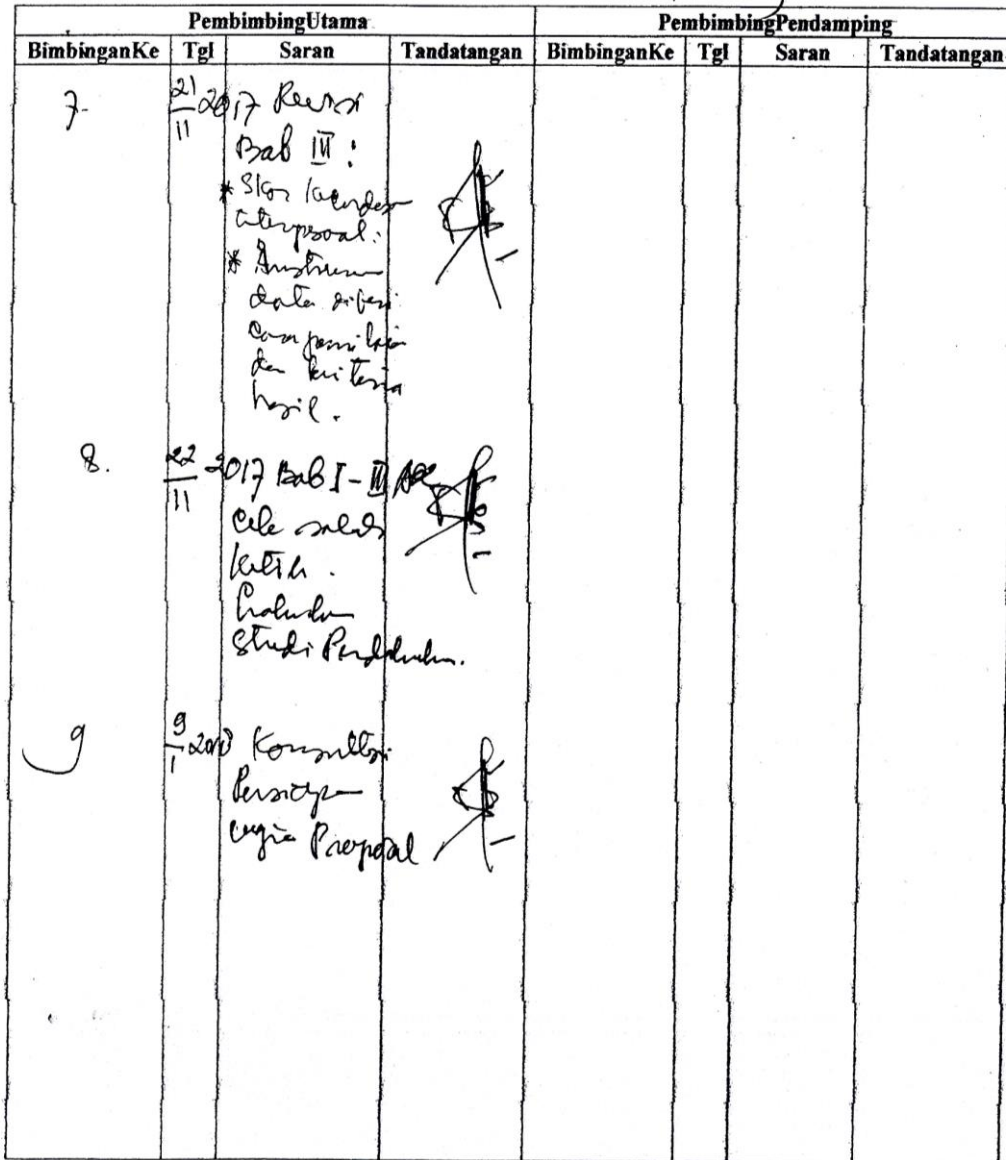 PembimbingUtama PembimbingPendamping
BimbinganKe Tgl Saran Tandatangan BimbinganKe Tgl Saran Tandatangan
7. 21/11 2017 Revisi
Bab III :
* Skor
interpersonal.
*
data diberi
cara penilaian
dan kriteria
hasil.
8. 22/11 2017 Bab I - III Acc
Cek salah
ketik.
Lakukan
Studi Pendahuluan.
9 9/1 2018 Konsultasi
Persiapan
ujian Proposal